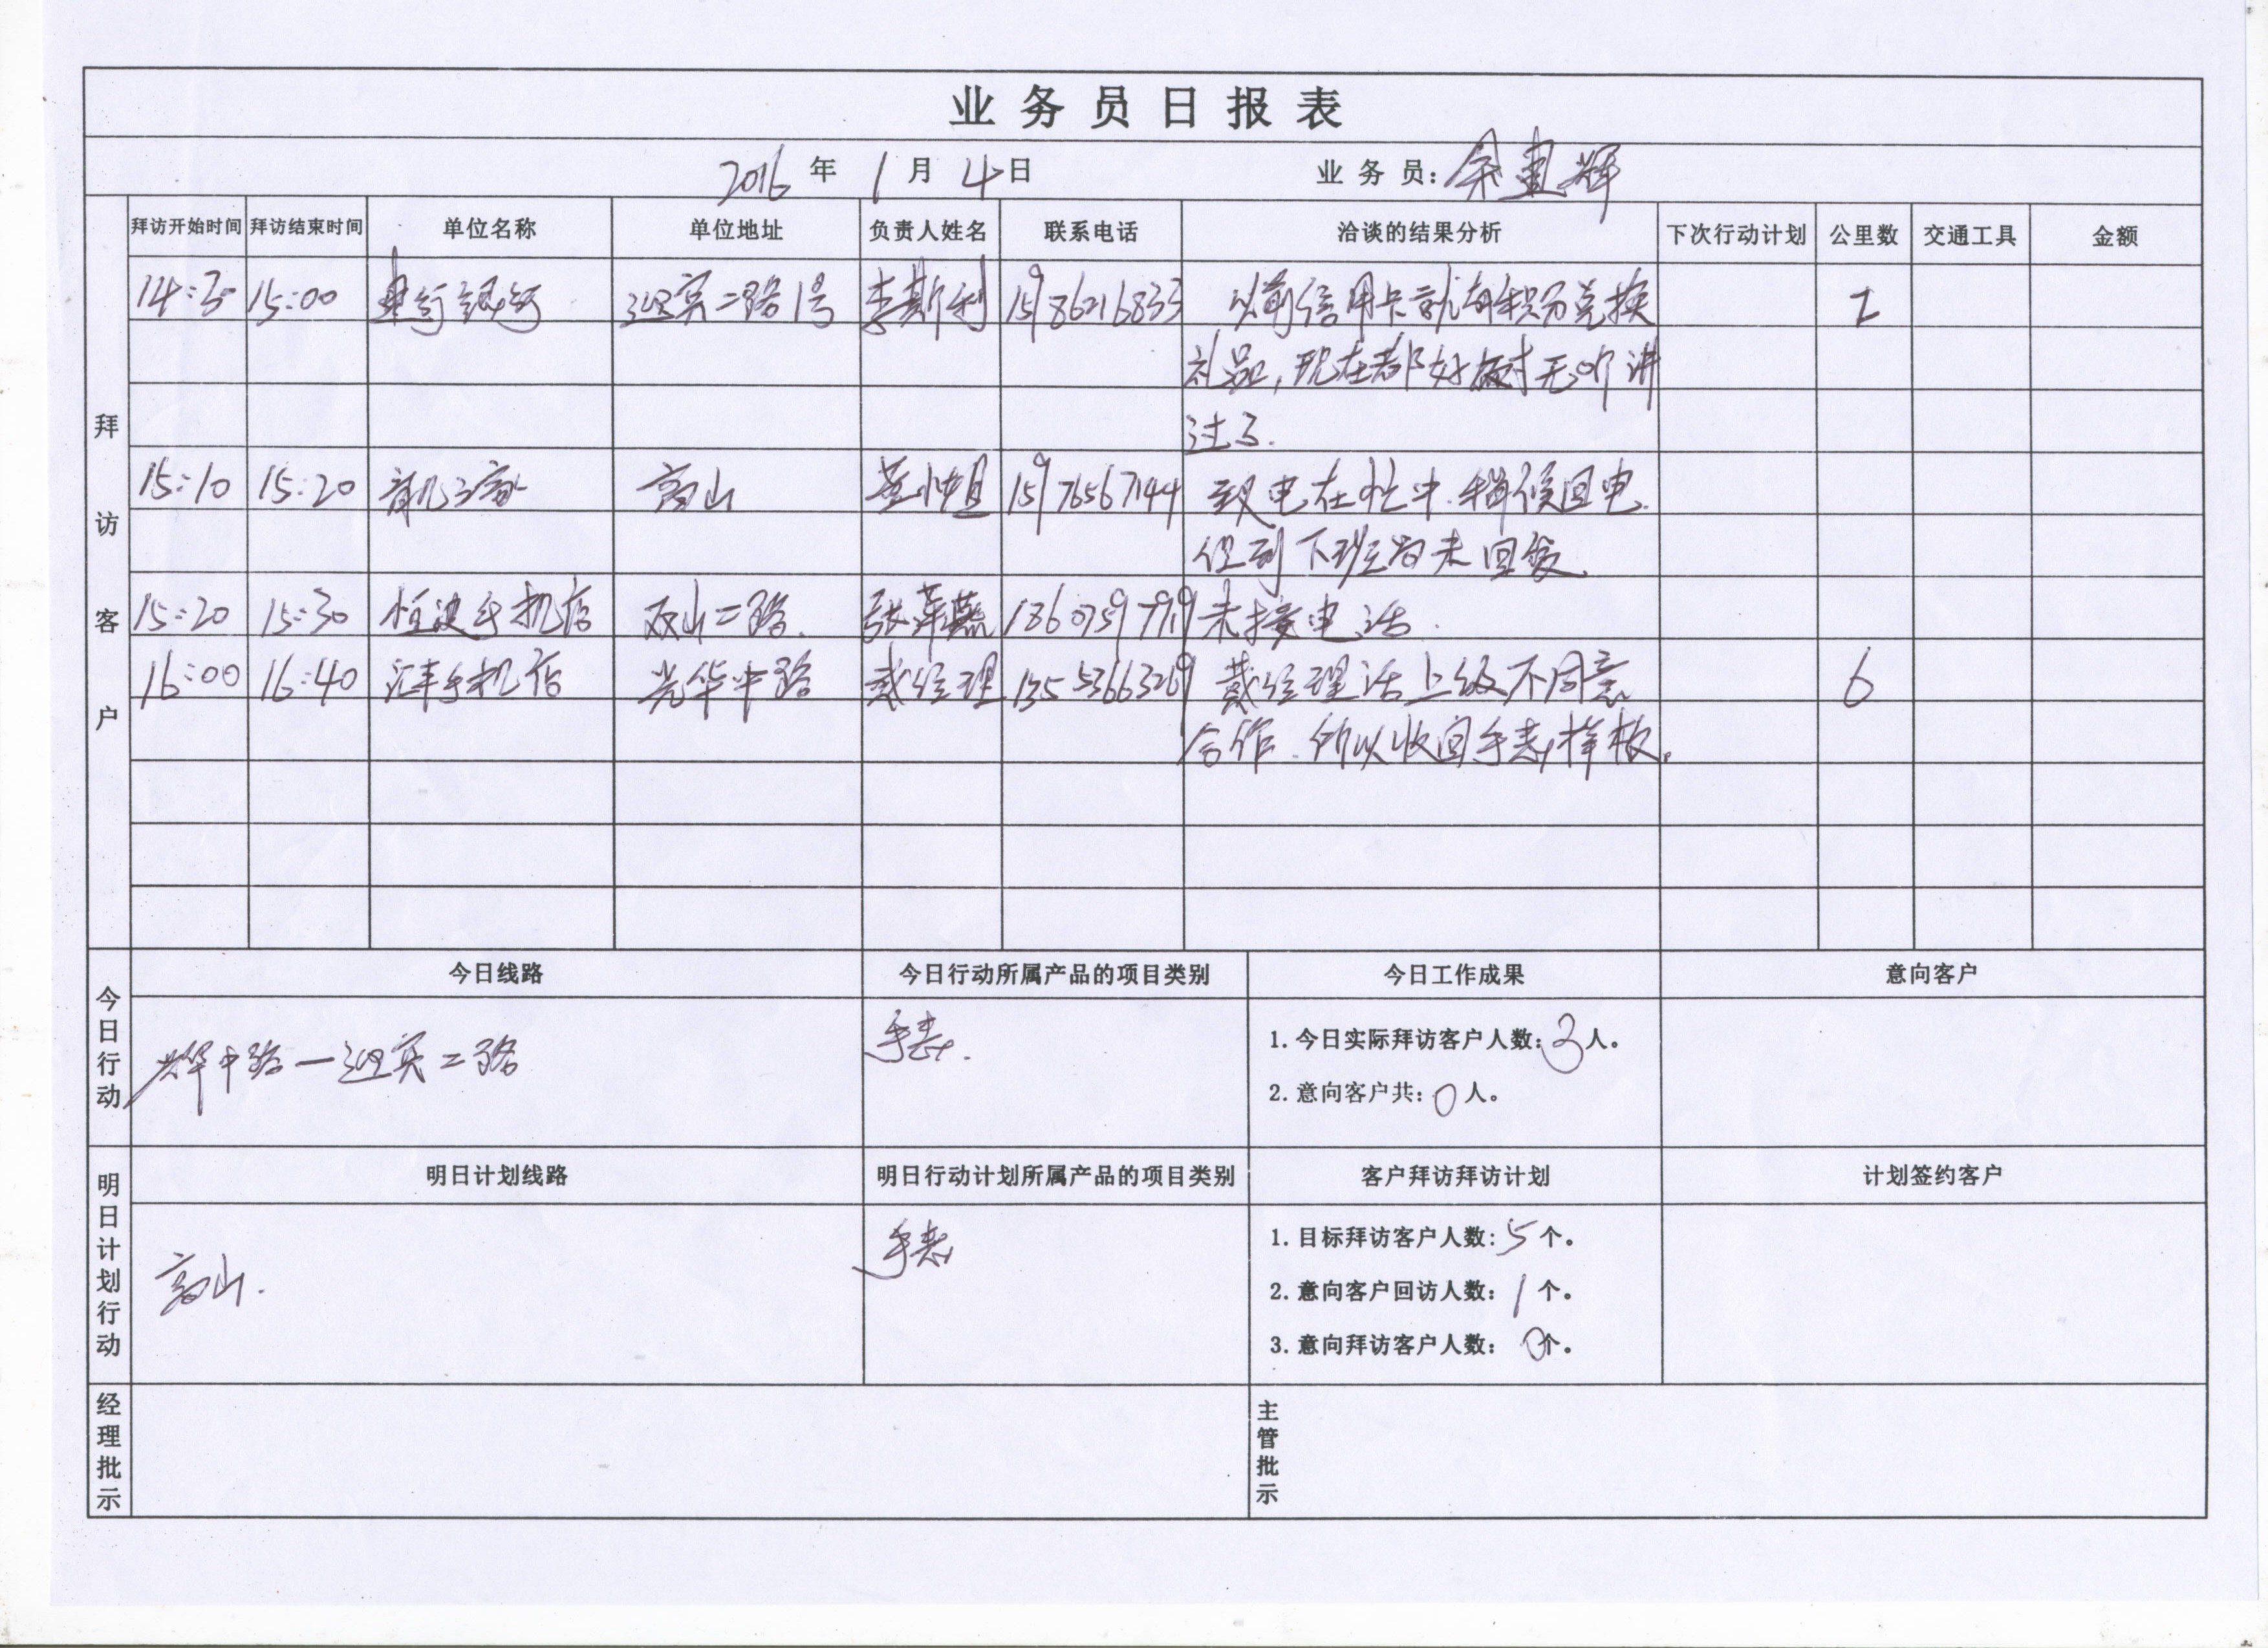 业务员日报表
2016 年 1 月 4 日 业务员:余建辉
拜访客户
拜访开始时间 拜访结束时间 单位名称 单位地址 负责人姓名 联系电话 洽谈的结果分析 下次行动计划 公里数 交通工具 金额
14:30 15:00 银行 迎宾二路1号 李斯利 15986216833 以前信用卡就有积分兑换
礼品,现在都好耐无听讲
过了.
15:10 15:20 高山 小姐 15976567144 致电在忙中.稍候回电.
但到下班为未回复.
15:20 15:30 恒波手机店 双山二路. 张萍燕 18607597719 未接电话.
16:00 16:40 汇丰手机店 光华中路 戴经理 13553663269 戴经理话上级不同意 6
合作.所以收回手表样板。
今日行动
今日线路 今日行动所属产品的项目类别 今日工作成果 意向客户
光华中路一迎宾二路 手表.
1.今日实际拜访客户人数:3人。
2.意向客户共:0人。
明日计划行动
明日计划线路 明日行动计划所属产品的项目类别 客户拜访拜访计划 计划签约客户
高山. 手表
1.目标拜访客户人数:5个。
2.意向客户回访人数:1个。
3.意向拜访客户人数:0个。
经理批示
主管批示